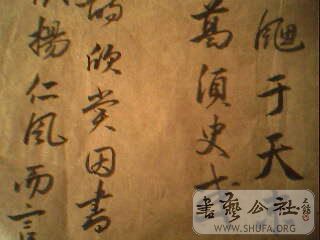 于天
萬須史
欣賞因書
揚仁風而言
書藝公社
WWW.SHUFA.ORG